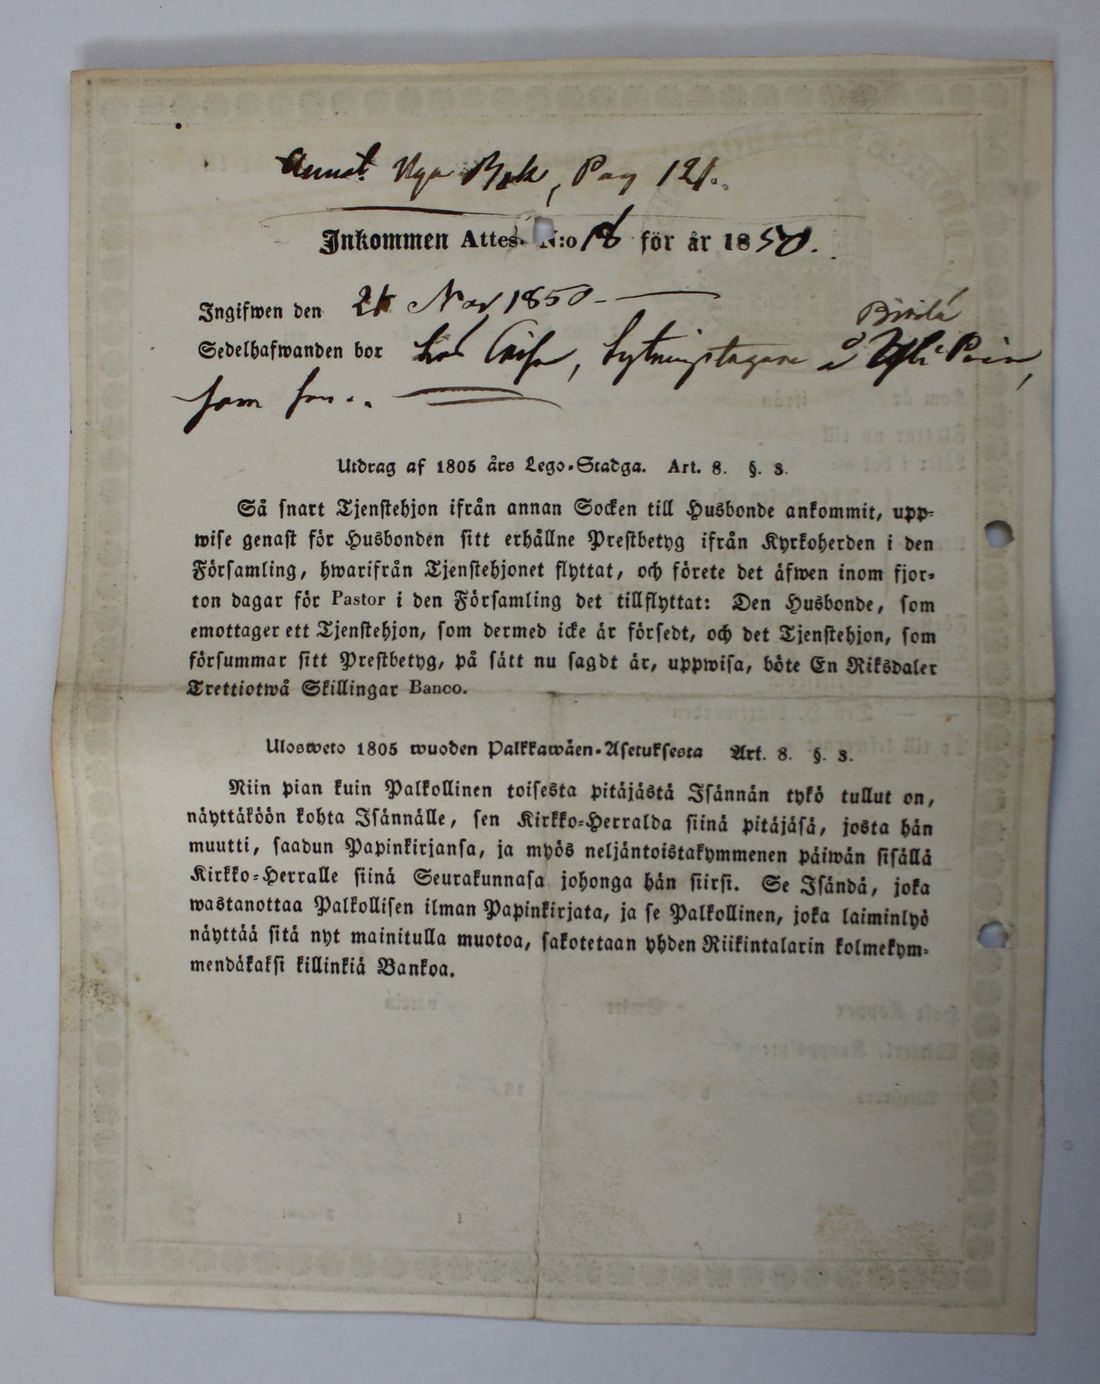 Annot. Nya Bok, Pag 121.
Inkommen Attes. N:o 18 för år 1850.
Ingifwen den 21 Nov 1850.
Sedelhafwanden bor hos , Sytningstagare å
som
Utdrag af 1805 års Lego-Stadga. Art. 8. §. 3.
Så snart Tjenstehjon ifrån annan Socken till Husbonde ankommit, upp-
wise genast för Husbonden sitt erhållne Prestbetyg ifrån Kyrkoherden i den
Församling, hwarifrån Tjenstehjonet flyttat, och förete det äfwen inom fjor-
ton dagar för Pastor i den Församling det tillflyttat: Den Husbonde, som
emottager ett Tjenstehjon, som dermed icke är försedt, och det Tjenstehjon, som
försummar sitt Prestbetyg, på sätt nu sagdt är, uppwisa, böte En Riksdaler
Trettiotwå Skillingar Banco.
Ulosweto 1805 wuoden Palkkawäen-Asetuksesta Art. 8. §. 3.
Niin pian kuin Palkollinen toisesta pitäjästä Isännän tykö tullut on,
näyttäköön kohta Isännälle, sen Kirkko-Herralda siinä pitäjäsä, josta hän
muutti, saadun Papinkirjansa, ja myös neljäntoistakymmenen päiwän sisällä
Kirkko-Herralle siinä Seurakunnasa johonga hän siirsi. Se Isändä, joka
wastanottaa Palkollisen ilman Papinkirjata, ja se Palkollinen, joka laiminlyö
näyttää sitä nyt mainitulla muotoa, sakotetaan yhden Riikintalarin kolmekym-
mendäkaksi killinkiä Bankoa.